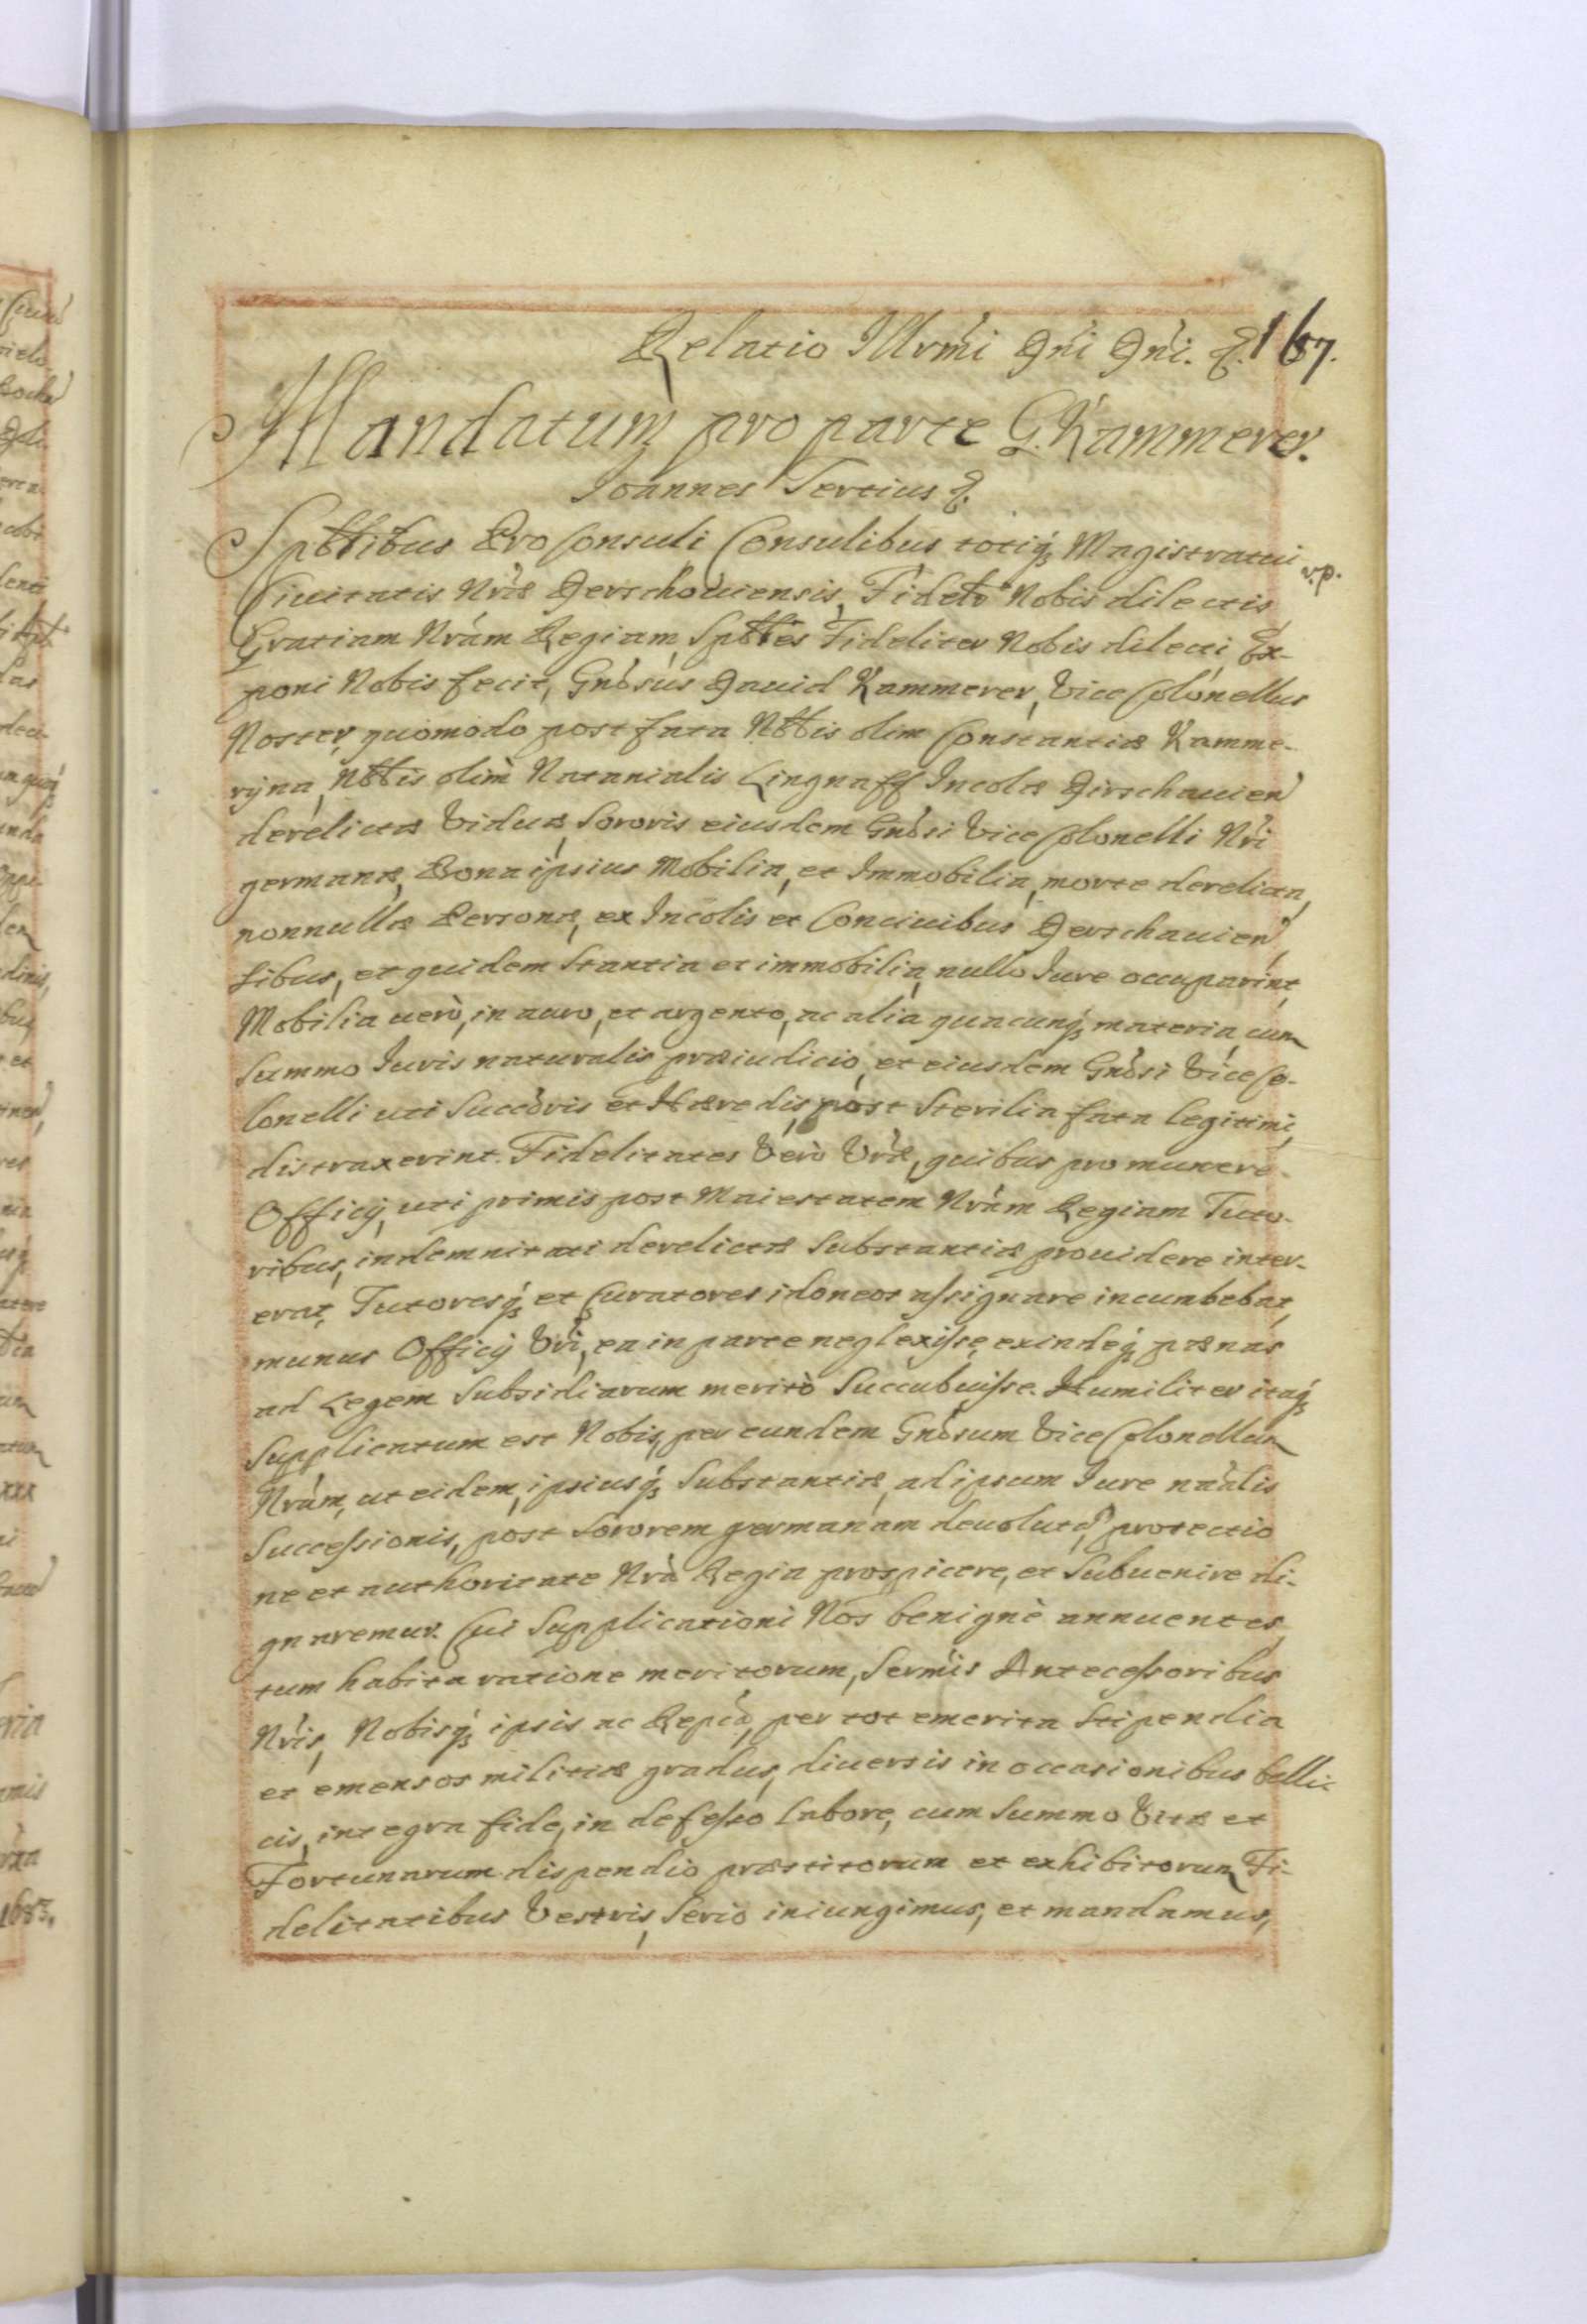 Relatio Illrmi Dni Dni. &. 167.
Mandatum pro parte G. Kammerer.
Joannes Tertius &.
Spttibus Pro Consuli Consulibus totiq3 Magistratui
n.p.
Ciuitatis Nrae Derschouiensis, Fidelr Nobis dilectis
Gratiam Nram Regiam, Spttes Fideliter Nobis dilecti, Ex-
poni Nobis fecit, Gnosus Dauid Kammerer, Vice Colonellus
Noster, quomodo post fata Nbtis olim Constantiae Kamme-
ryna, Nbtis olim Natanialis Lingnaff Incolae Dirschauien
derelictae Viduae, Sororis eiusdem Gnosi Vice Colonelli Nri
germanae, Bona ipsius Mobilia, et Immobilia, morte derelicta,
nonnullae Personae, ex Incolis et Conciuibus Derschauien
sibus, et quidem Stantia et immobilia, nullo Jure occuparint,
Mobilia uerò, in auro, et argento, ac alia quacunq3 materia, cum
summo Juris naturalis praeiudicio, et eiusdem Gnosi Vice Co-
lonelli uti Succoris et Haeredis, post Sterilia fata legitimi,
distraxerint. Fidelitates Verò Vrae, quibus pro munere
Officij, uti primis post Maiestatem Nram Regiam Tuto-
ribus, indemnitati derelictae Substantiae prouidere inter-
erat, Tutoresq3 et Curatores idoneos assignare incumbebat,
munus Officij Vri, ea in parte neglexisse, exindeq3 paenas
ad Legem Subsidiarum meritò Succubuisse. Humiliter itaq3
Supplicatum est Nobis, per eundem Gnosum Vice Colonellum
Nrum, ut eidem, ipsiusq3 Substantiae, ad ipsum Jure naalis
Successionis, post Sororem germanam deuolutae, protectio
ne et authoritate Nra Regia prospicere, et Subuenire di-
gnaremur. Cui Supplicationi Nos benignè annuentes,
tum habita ratione meritorum, Sermis Antecessoribus
Nris, Nobisq3 ipsis ac Reipca, per tot emerita Stipendia
et emensos militiae gradus, diuersis in occasionibus belli-
cis, integra fide, indefesso labore, cum Summo Vitae et
Fortunarum dispendio praestitorum et exhibitorum, Fi-
delitatibus Vestris, Serio iniungimus, et mandamus,